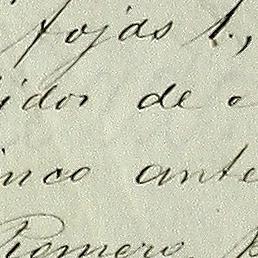 fojas 1.,
idor de
inco ante
Romero,